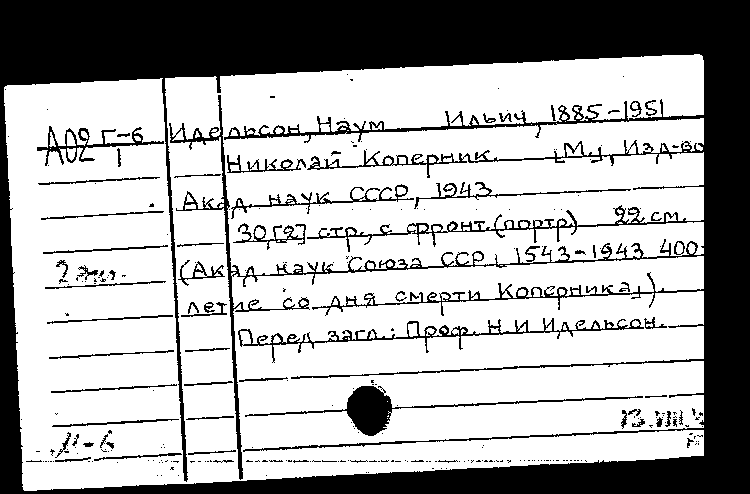 А02 Г-6 Идельсон, Наум Ильич, 1885-1951
1
Николай Коперник. [М.], Изд-во
Акад. наук СССР, 1943
30,[2] стр., с фронт.(портр.) 22 см.
2 экз. (Акад. наук Союза ССР [1543-1943 400-
летие со дня смерти Коперника]).
Перед загл.: Проф. Н.И Идельсон.
М-6